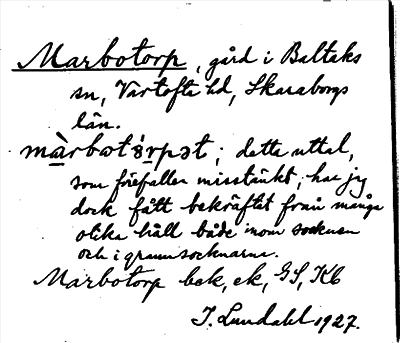 Marbotorp, gård i Baltaks
sn, Vartofta hd, Skaraborgs
län.
màrbotórpət; detta uttal,
som förefaller misstänkt, har jag
dock fått bekräftat från många
olika håll både inom socknen
och i grannsocknarna.
Marbotorp bek, ek, GS, Kb
I. Lundahl 1927.